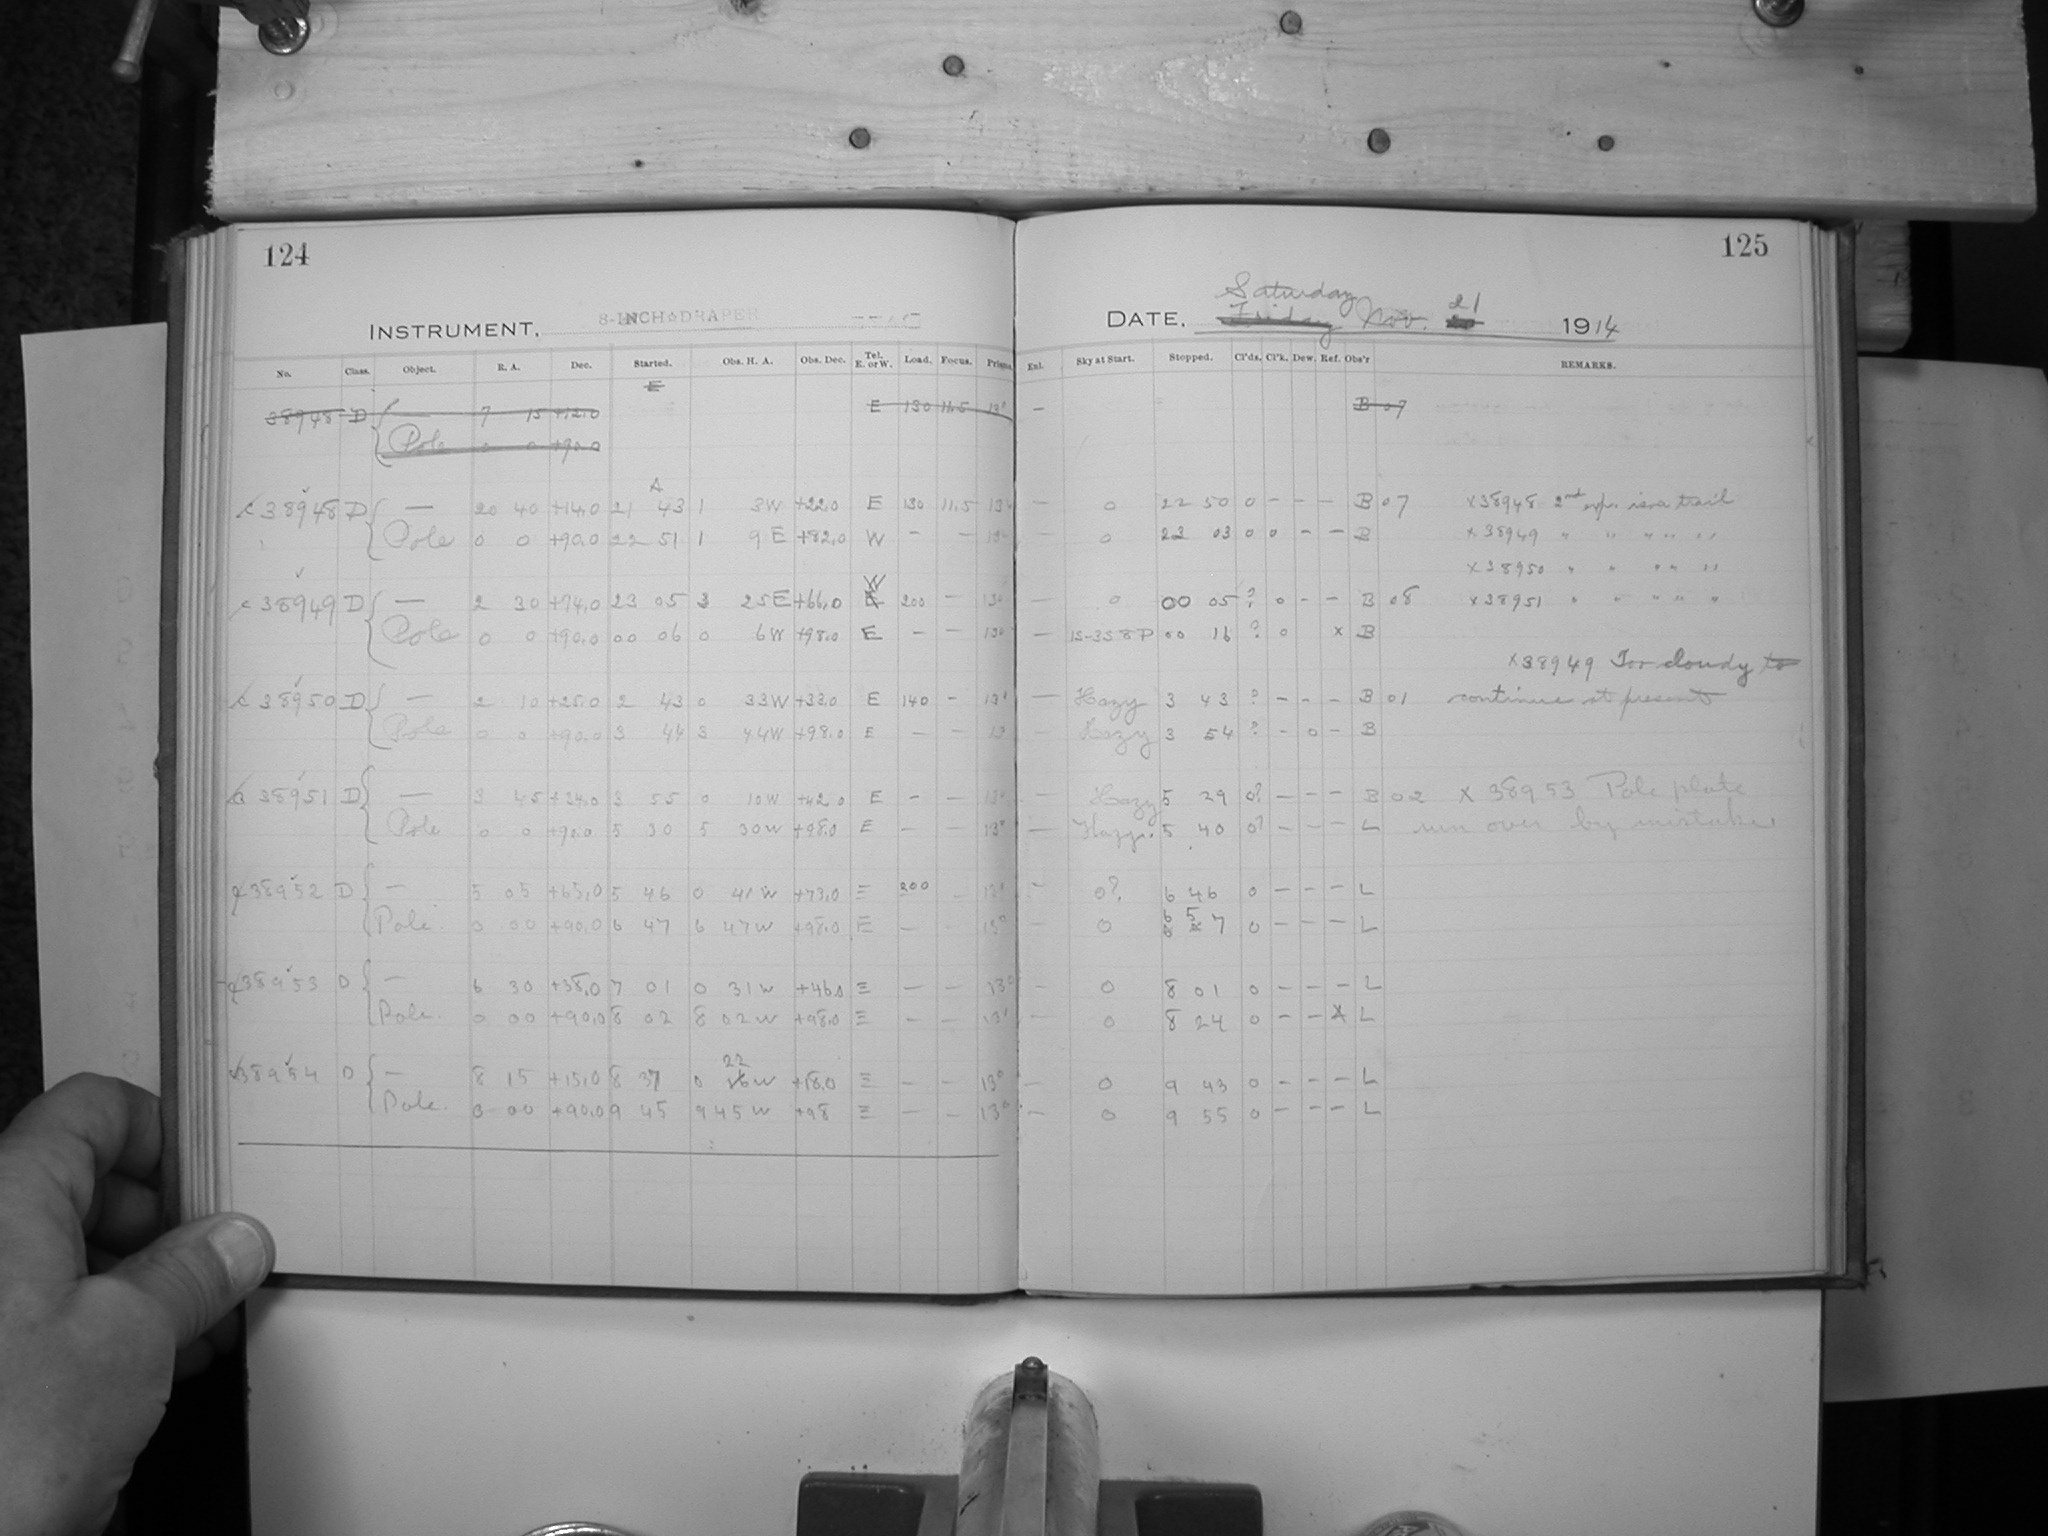 124
INSTRUMENT, 8-INCH DRAPER
No. Class. Object. R. A. Dec. Started. Obs. H. A. Obs. Dec. Tel. E. or W. Load. Focus. Prism.
E
38948 D — 7 15 +12.0 E 130 11.5 13°
Pole 0 0 +90.0
A
38948 D — 20 40 +14.0 21 43 1 3W +22.0 E 130 11.5 13°
Pole 0 0 +90.0 22 51 1 9E +82.0 W — — 13°
W
38949 D — 2 30 +74.0 23 05 3 25E +66.0 E 200 — 13°
Pole 0 0 +90.0 00 06 0 6W +98.0 E — — 13°
38950 D — 2 10 +25.0 2 43 0 33W +33.0 E 140 — 13°
Pole 0 0 +90.0 3 44 3 44W +98.0 E — — 13
38951 D — 3 45 +34.0 3 55 0 10W +42.0 E — — 13°
Pole 0 0 +90.0 5 30 5 30W +98.0 E — — 13°
38952 D — 5 05 +65.0 5 46 0 41W +73.0 E 200 — 13°
Pole. 0 00 +90.0 6 47 6 47W +98.0 E — — 13°
38953 D — 6 30 +38.0 7 01 0 31W +46.0 E — — 13°
Pole. 0 00 +90.0 8 02 8 02W +98.0 E — — 13°
22
38954 D — 8 15 +15.0 8 37 0 16W +18.0 E — — 13°
Pole. 0 00 +90.0 9 45 9 45W +98 E — — 13°
125
Saturday 21
DATE, Friday Nov. 1914
Enl. Sky at Start. Stopped. Cl'ds. Cl'k. Dew. Ref. Obs'r REMARKS.
— B 07
— 0 22 50 0 — — — B 07 X38948 2nd exp. is a trail
— 0 23 03 0 0 — — B X38949 " " " " "
X38950 " " " " "
0 00 05 ? 0 — — B 08 X38951 " " " " "
— 15-35 8P 00 16 ? 0 X B
X38949 Too cloudy to
— Hazy 3 43 ? — — — B 01 continue at present
— Hazy 3 54 ? — 0 — B
— Hazy 5 29 0? — — — B 02 X 38953 Pole plate
— Hazy. 5 40 0? — — — L run over by mistake
— 0? 6 46 0 — — — L
— 0 6 57 0 — — — L
— 0 8 01 0 — — — L
— 0 8 24 0 — — X L
— 0 9 43 0 — — — L
— 0 9 55 0 — — — L